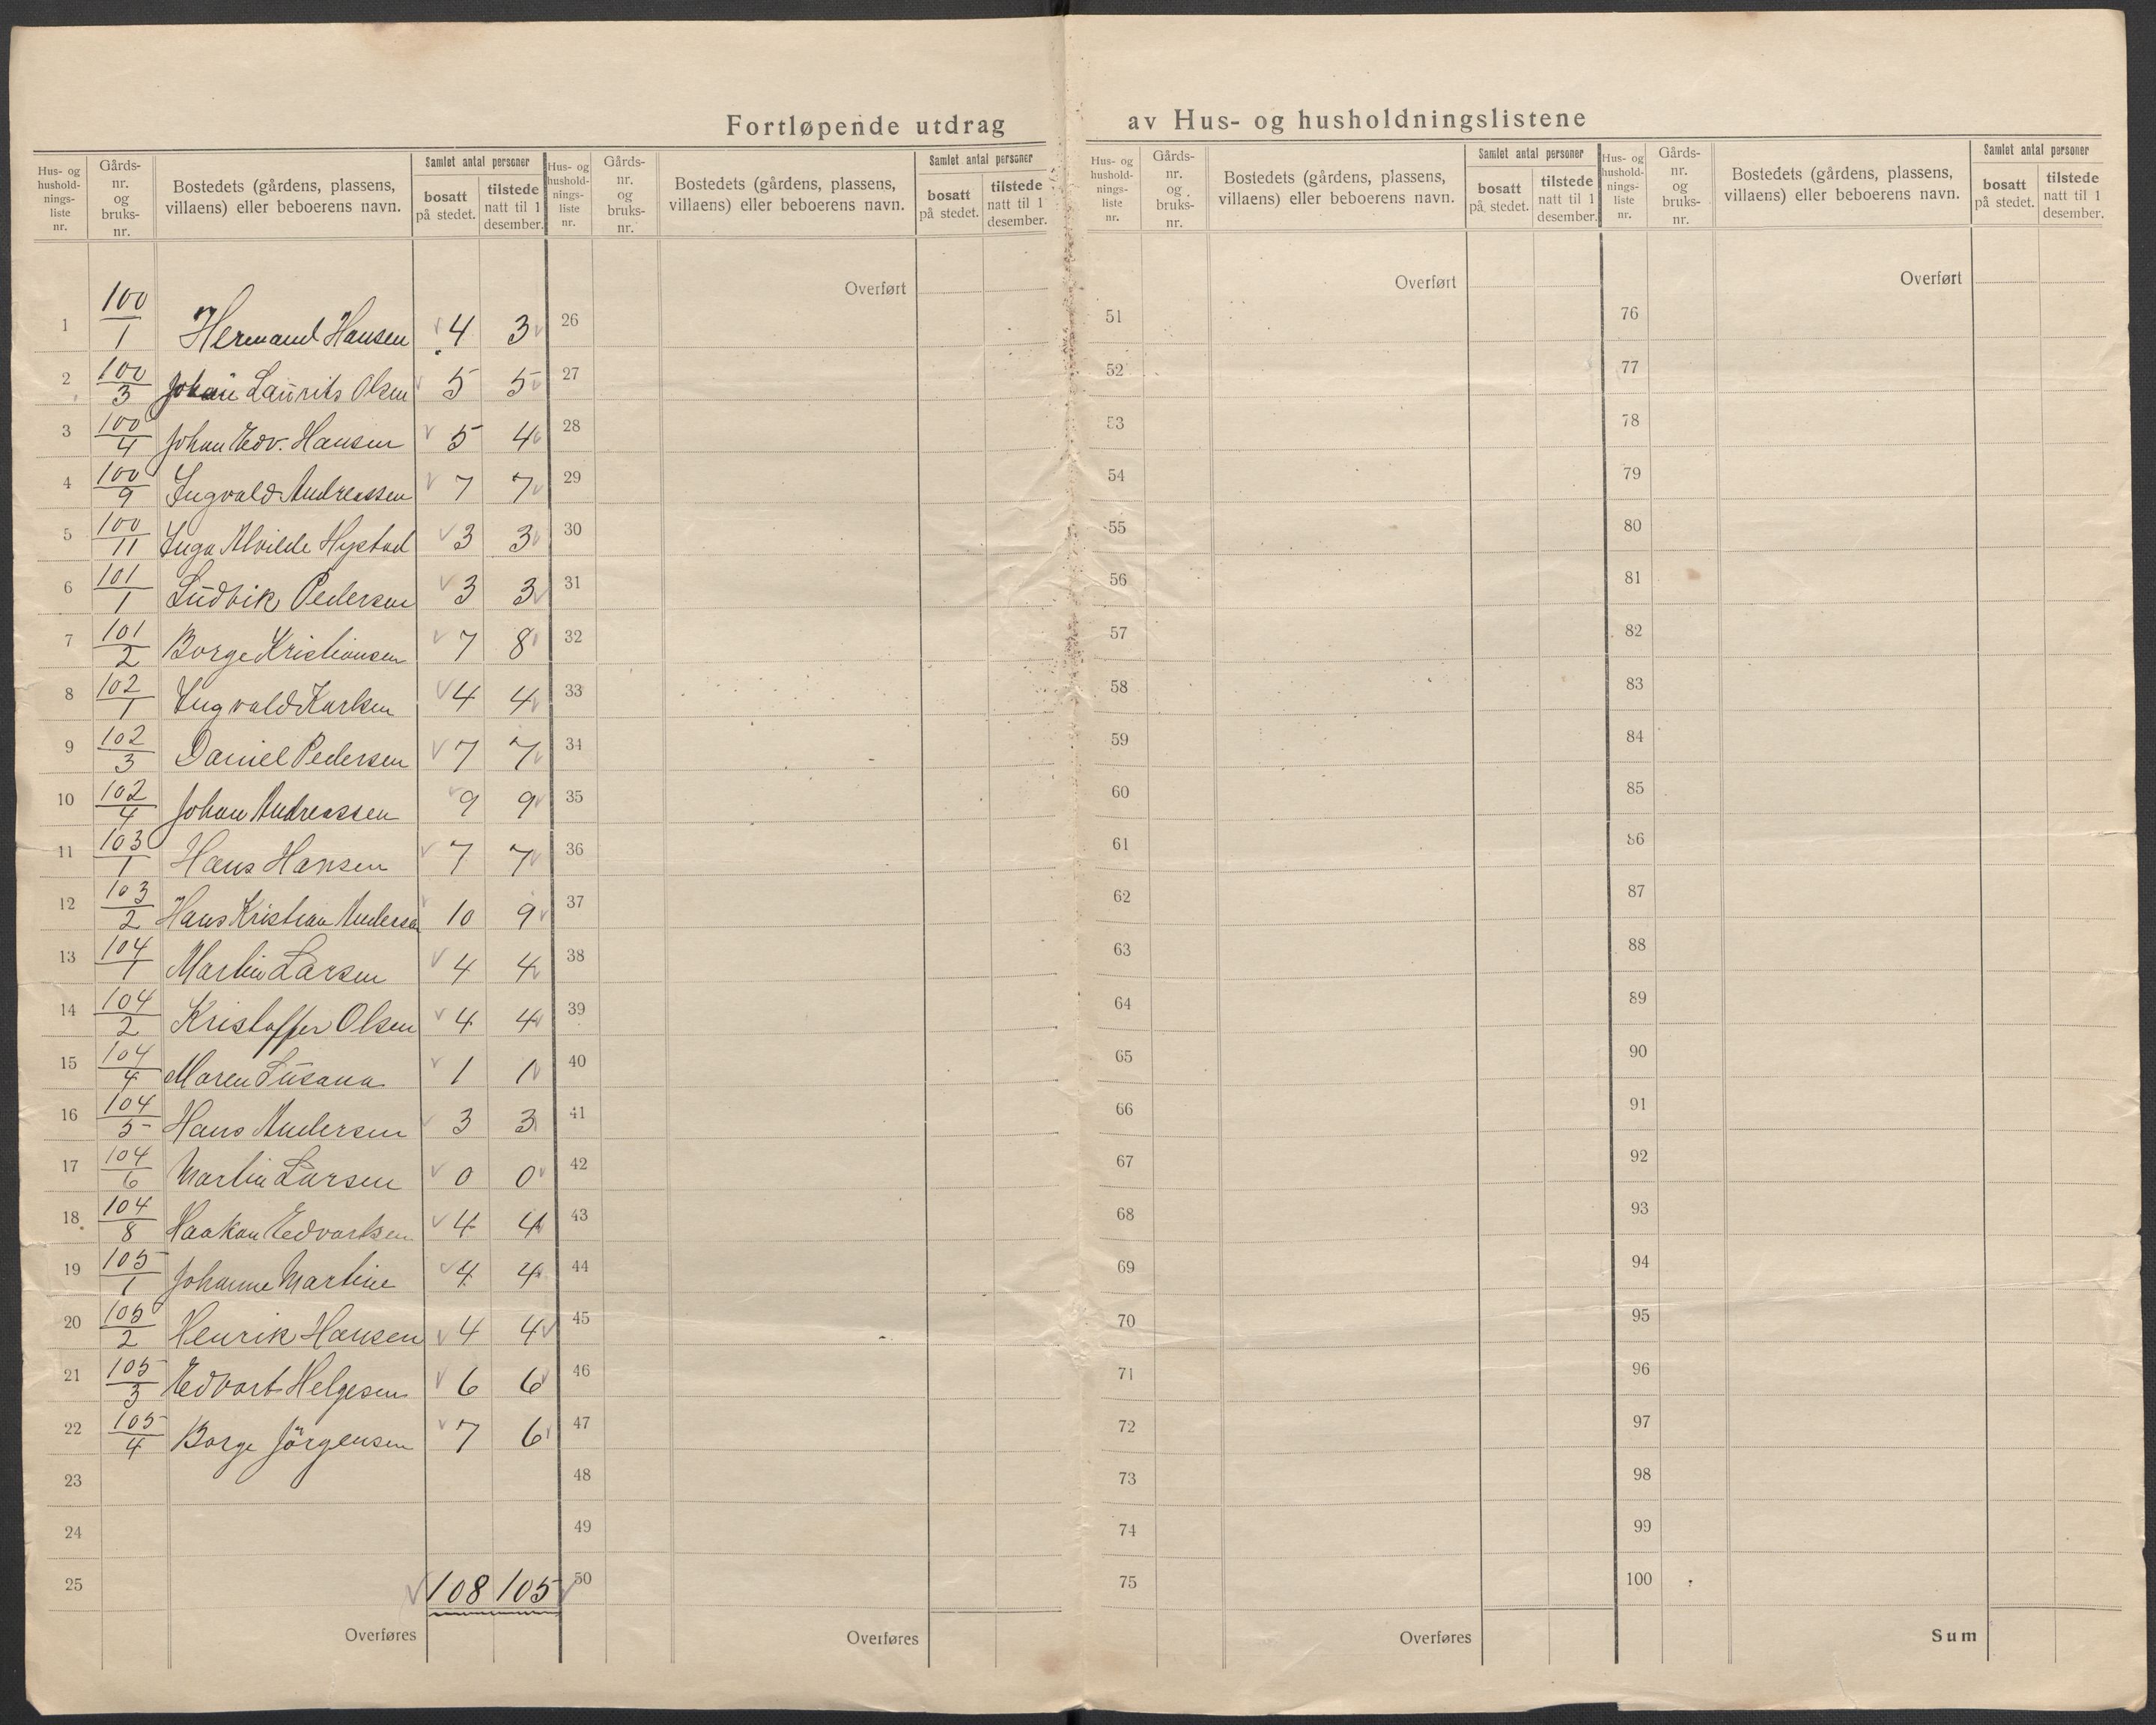 Fortløpende utdrag av Hus- og husholdningslistene
Hus- og hushold- nings- liste nr. | Gårds- nr. og bruks- nr. | Bostedets (gårdens, plassens, villaens) eller beboerens navn. | Samlet antal personer | bosatt på stedet. | tilstede natt til 1 desember.
1 100/1 Hermand Hansen 4 3
2 100/3 Johan Laurits Olsen 5 5
3 100/4 Johan Edv. Hansen 5 4
4 100/9 Ingvald Andreassen 7 7
5 100/11 Inga Alvilde Hystad 3 3
6 101/1 Ludvik Pedersen 3 3
7 101/2 Borge Kristiansen 7 8
8 102/1 Ingvald Karlsen 4 4
9 102/3 Daniel Pedersen 7 7
10 102/4 Johan Andreassen 9 9
11 103/1 Hans Hansen 7 7
12 103/2 Hans Kristian Andersen 10 9
13 104/1 Martin Larsen 4 4
14 104/2 Kristoffer Olsen 4 4
15 104/4 Maren Susana 1 1
16 104/5 Hans Andersen 3 3
17 104/6 Martin Larsen 0 0
18 104/8 Haakon Edvartsen 4 4
19 105/1 Johanne Martine 4 4
20 105/2 Henrik Hansen 4 4
21 105/3 Edvart Helgesen 6 6
22 105/4 Borge Jörgensen 7 6
23
24
25 108 105
Overføres
Hus- og hushold- nings- liste nr. | Gårds- nr. og bruks- nr. | Bostedets (gårdens, plassens, villaens) eller beboerens navn. | Samlet antal personer | bosatt på stedet. | tilstede natt til 1 desember.
Overført
26
27
28
29
30
31
32
33
34
35
36
37
38
39
40
41
42
43
44
45
46
47
48
49
50
Overføres
Hus- og hushold- nings- liste nr. | Gårds- nr. og bruks- nr. | Bostedets (gårdens, plassens, villaens) eller beboerens navn. | Samlet antal personer | bosatt på stedet. | tilstede natt til 1 desember.
Overført
51
52
53
54
55
56
57
58
59
60
61
62
63
64
65
66
67
68
69
70
71
72
73
74
75
Overføres
Hus- og hushold- nings- liste nr. | Gårds- nr. og bruks- nr. | Bostedets (gårdens, plassens, villaens) eller beboerens navn. | Samlet antal personer | bosatt på stedet. | tilstede natt til 1 desember.
Overført
76
77
78
79
80
81
82
83
84
85
86
87
88
89
90
91
92
93
94
95
96
97
98
99
100
Sum